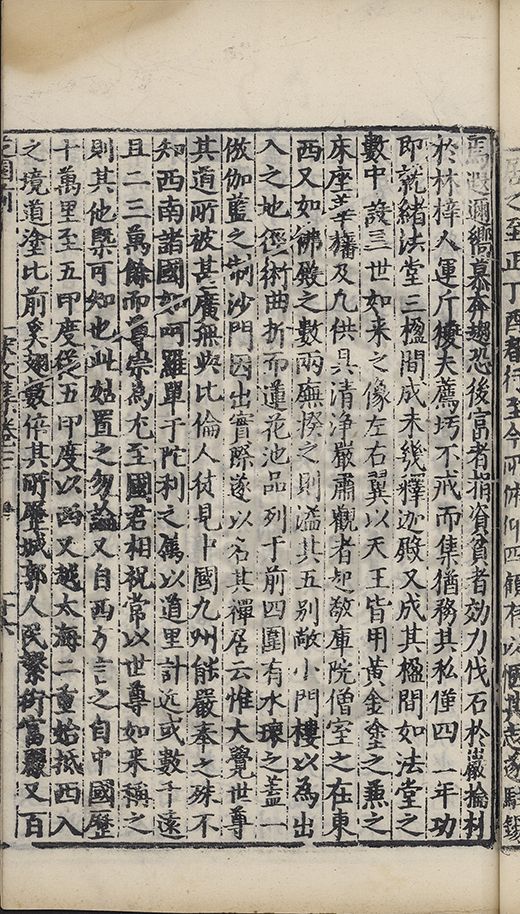 之至正丁酉都行至今所休仰四顧有以愜其志遂駐錫
焉遐邇嚮慕奔趨恐後富者指資貧者効力伐石於巖掄材
於林梓人運斤獿夫薦圬不戒而集猶務其私僅四一年功
即就緒法堂三楹間成未幾釋迦殿又成其楹間如法堂之
數中設三世如来之像左右翼以天王皆用黃金塗之熏之
床座旛及凡供具清浄嚴肅觀者起敬庫院僧室之在東
西又如佛殿之數兩廡揆之則溢其五别敞小門樓以為出
入之地徑術曲折而蓮花池品列于前四圍有水環之盖一
倣伽藍之制沙門因出實際遂以名其禪居云惟大覺世尊
其道所被甚廣無與比倫人徒見中國九州能嚴奉之殊不
知西南諸國如呵羅單于陀利之屬以道里計近或數千遠
且二三萬餘而尊崇為尤至國君相祝常以世尊如来稱之
則其他槩可知也此姑置之勿論又自西方言之自中國歷
十萬里至五印度從五印度以西又越大海二重始抵西入
之境道塗比前奚翅數倍其所歷城郭人民繁衍富麗又百